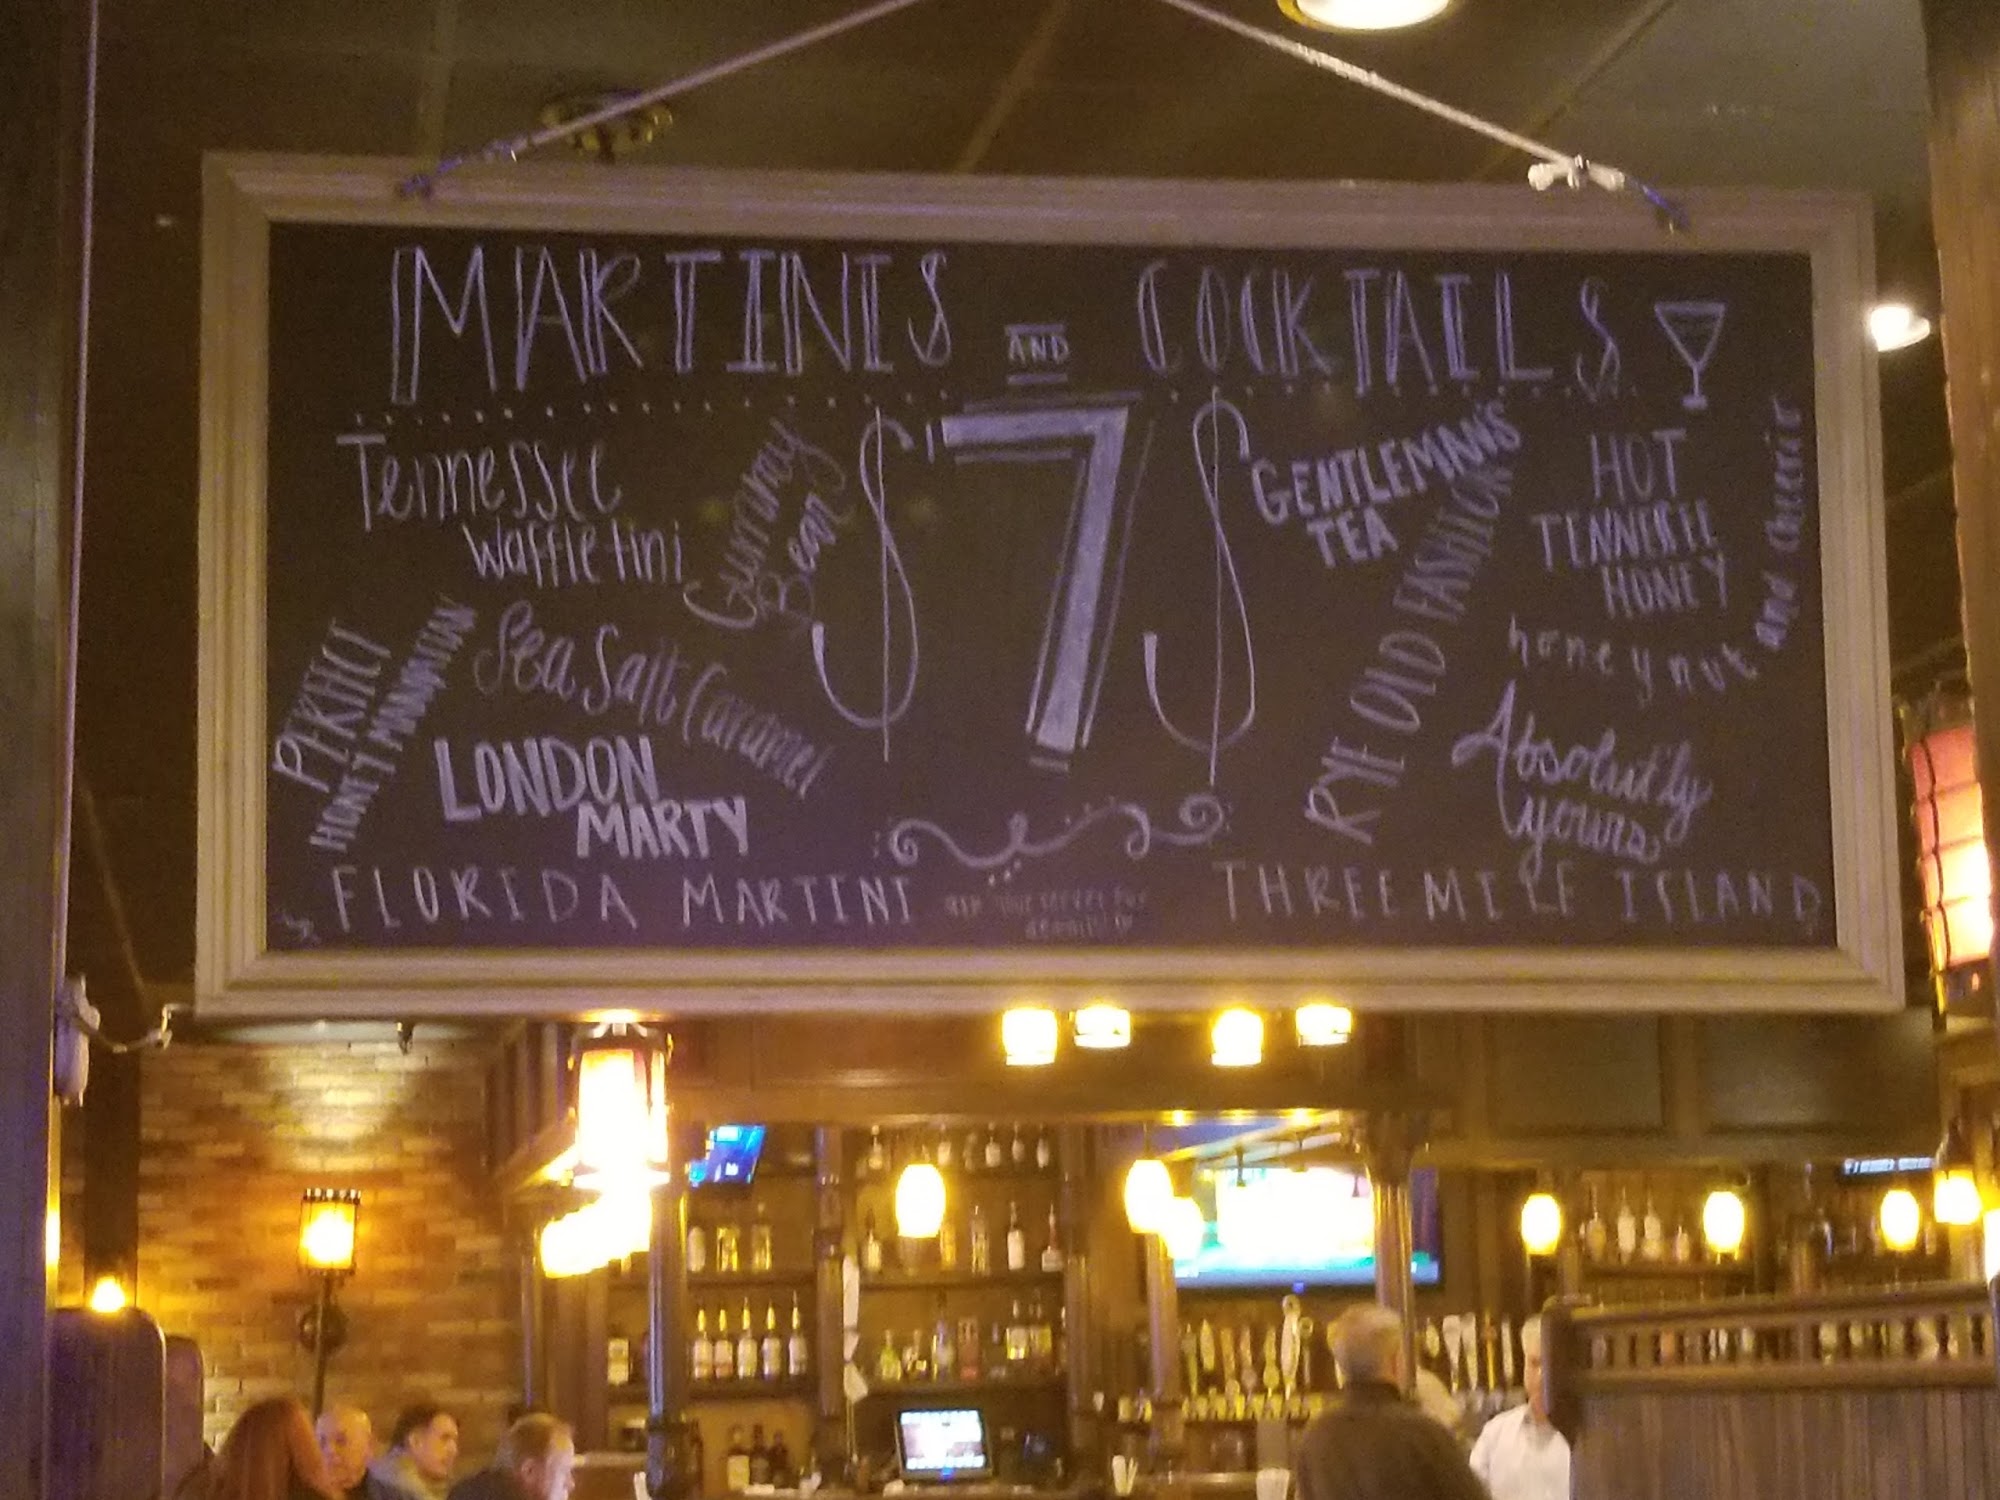 MARTINIS AND COCKTAILS
$7$
Tennessee
Waffletini
Gummy
Bears
PERFECT
HONEY MANHATTAN
Sea Salt Caramel
LONDON
MARTY
FLORIDA MARTINI
GENTLEMAN'S
TEA
RYE OLD FASHION
HOT
TENNESSEE
HONEY
honey nut and cheerio
Absolut'ly
yours
THREE MILE ISLAND
ask your server for
details